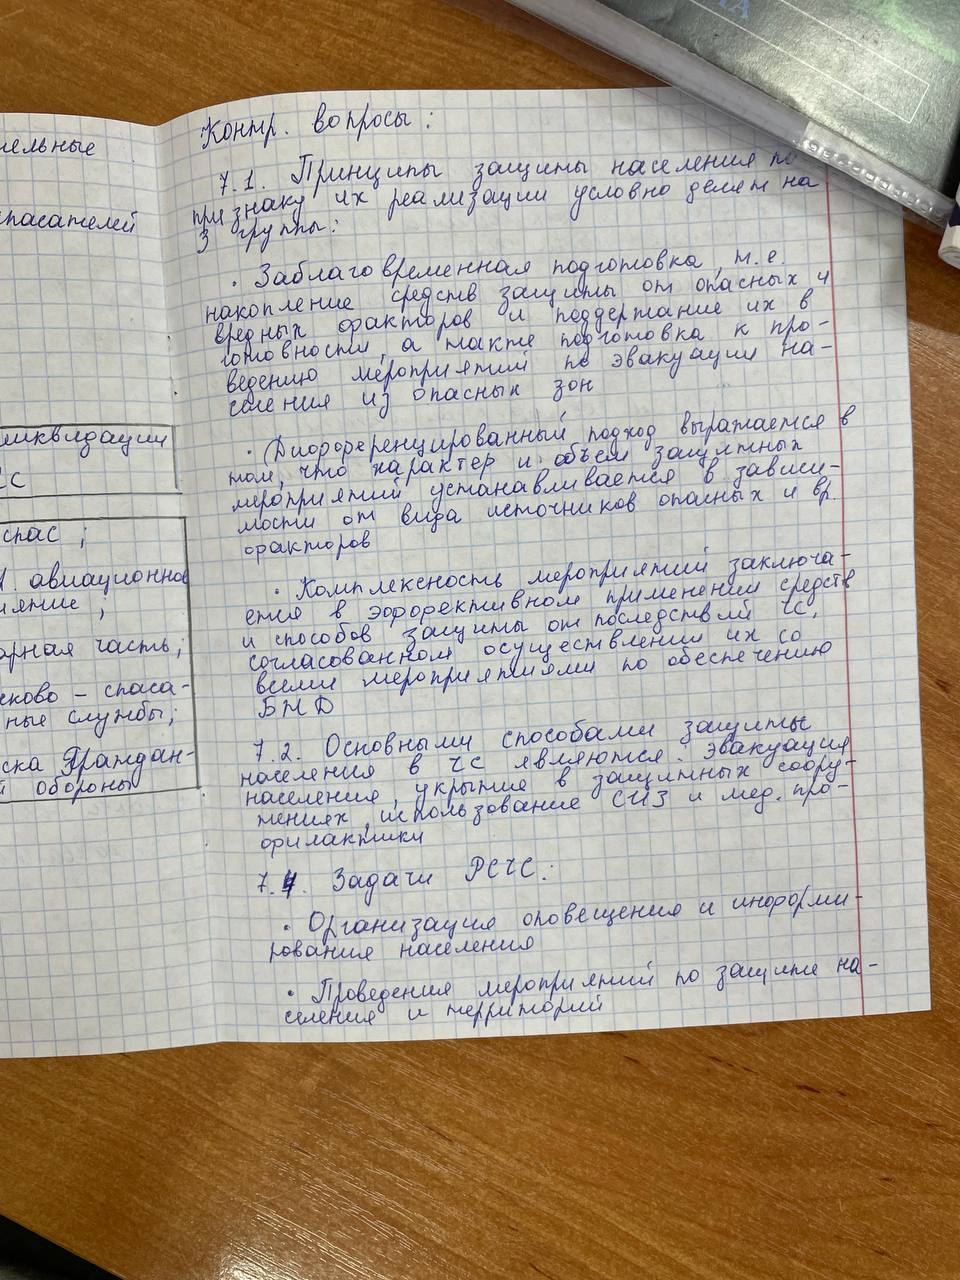 спасателей
ликвидации
ЧС
спас ;
авиационное
;
часть ;
спаса-
ные службы;
Граждан-
обороны
Контр. вопросы :
7.1. Принципы защиты населения по
признаку их реализации условно делят на
3 группы:
· Заблаговременная подготовка, т.е.
накопление средств защиты от опасных и
вредных факторов и поддержание их в
готовности, а также подготовка к про-
ведению мероприятий по эвакуации на-
селения из опасных зон
· Дифференцированный подход выражается в
том, что характер и объем защитных
мероприятий устанавливается в зависи-
мости от вида источников опасных и вр.
факторов
· Комплексность мероприятий заключа-
ется в эффективном применении средств
и способов защиты от последствий ЧС,
согласованном осуществлении их со
всеми мероприятиями по обеспечению
БЖД
7.2. Основными способами защиты
населения в ЧС являются. эвакуация
населения, укрытие в защитных соору-
жениях, использование СИЗ и мед. про-
филактики
7.4. Задачи РСЧС:
· Организация оповещения и информи-
рования населения
· Проведения мероприятий по защите на-
селения и территорий